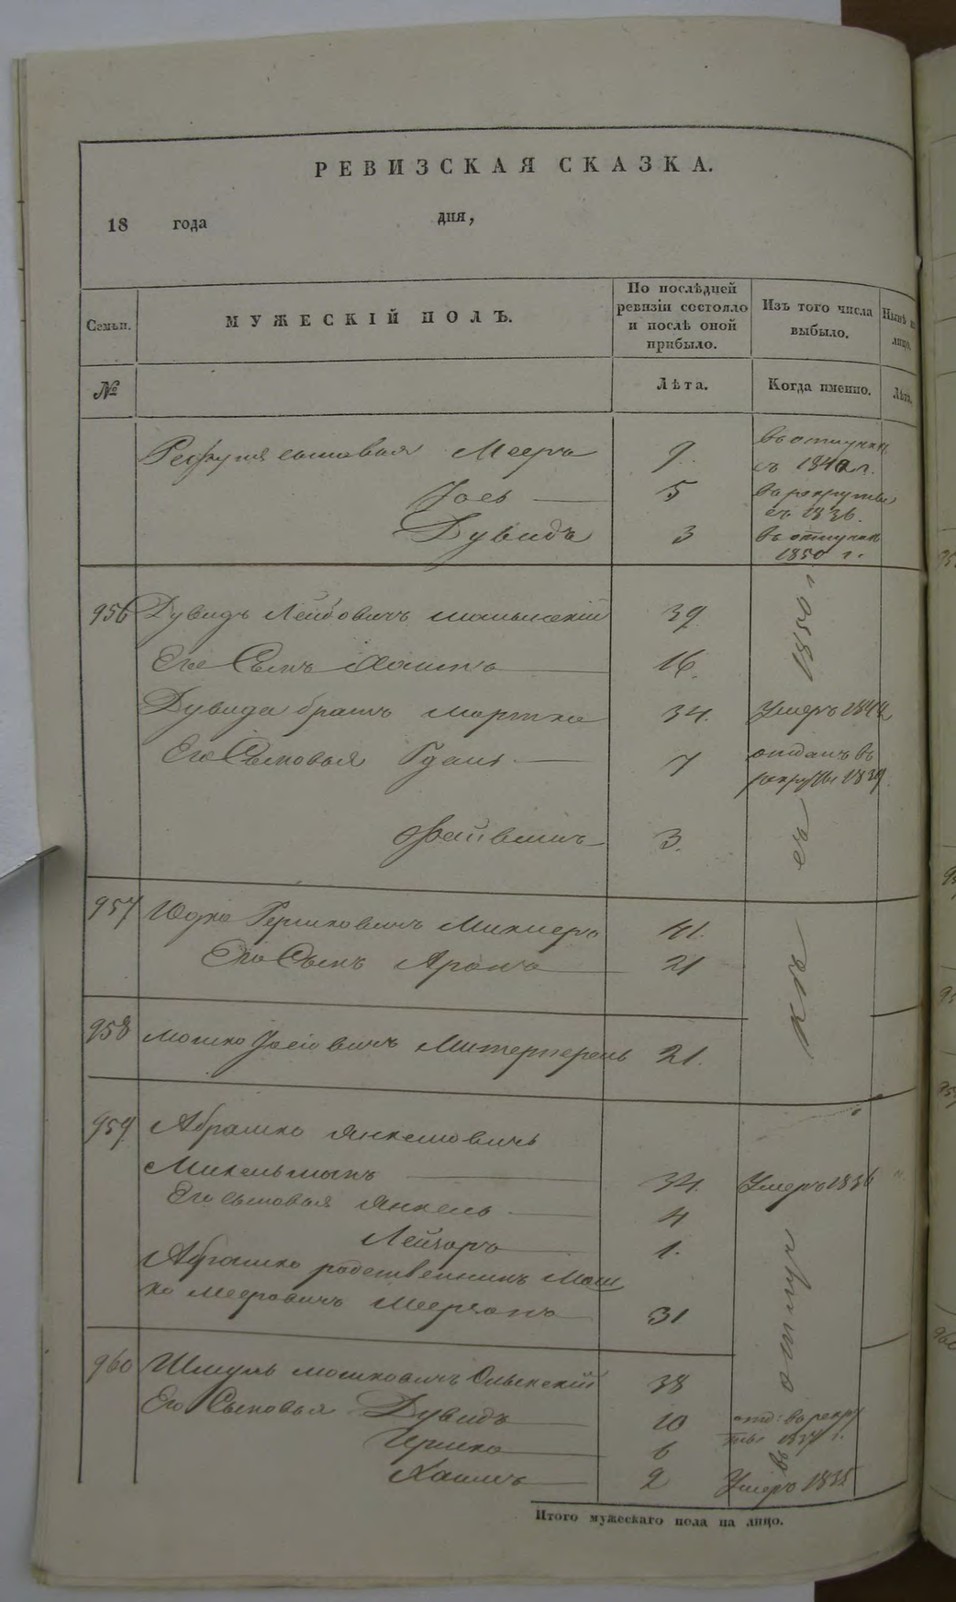 РЕВИЗСКАЯ СКАЗКА.
18 года дня,
Семьи. МУЖЕСКІЙ ПОЛЪ. По послѣдней ревизіи состояло и послѣ оной прибыло. Изъ того числа выбыло. Нынѣ на лицо.
№ Лѣта. Когда именно. Лѣта.
сыновья Мееръ 9 въ отлучкѣ съ 1840 г.
Іось 5 въ рекруты съ 1836.
Дувидъ 3 въ отлучкѣ 1850 г.
956 Дувидъ Лейбовичъ 39
Его Сынъ Хаимъ 16.
Дувида братъ Мортхе 34. Умеръ 1844
Его Сыновья 7 отданъ въ рекруты 1839
Файвишъ 3.
957 Юдко Гершковичъ 41.
Его Сынъ Аронъ 21
958 Мошко Іосіовичъ 21.
959 Абрамко Янкелевичъ
Микельманъ 34. Умеръ 1836 "
Его сыновья Янкель 4
Лейзоръ 1.
Абрамко родственникъ Мош
ко Мееровичъ Меерзонъ 31
960 Шмуль Мошковичъ Олынскій 38
Его Сыновья Дувидъ 10 отд: въ рекруты 1837 г.
Гершко 6
Хаимъ 2 Умеръ 1835
въ отлучкѣ съ 1850 г
Итого мужескаго пола на лицо.